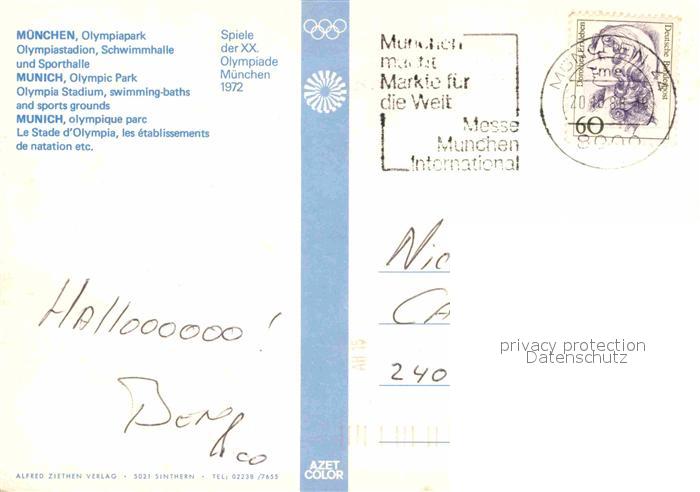 MÜNCHEN, Olympiapark
Olympiastadion, Schwimmhalle
und Sporthalle
MUNICH, Olympic Park
Olympia Stadium, swimming-baths
and sports grounds
MUNICH, olympique parc
Le Stade d'Olympia, les établissements
de natation etc.
Spiele
der XX.
Olympiade
München
1972
München
macht
Märkte für
die Welt
Messe
München
International
Deutsche Bundespost
60
8000
Hallooooooo!
& co
Nic
CA
240
privacy protection
Datenschutz
AZET
COLOR
ALFRED ZIETHEN VERLAG • 5021 SINTHERN • TEL: 02238 /7655